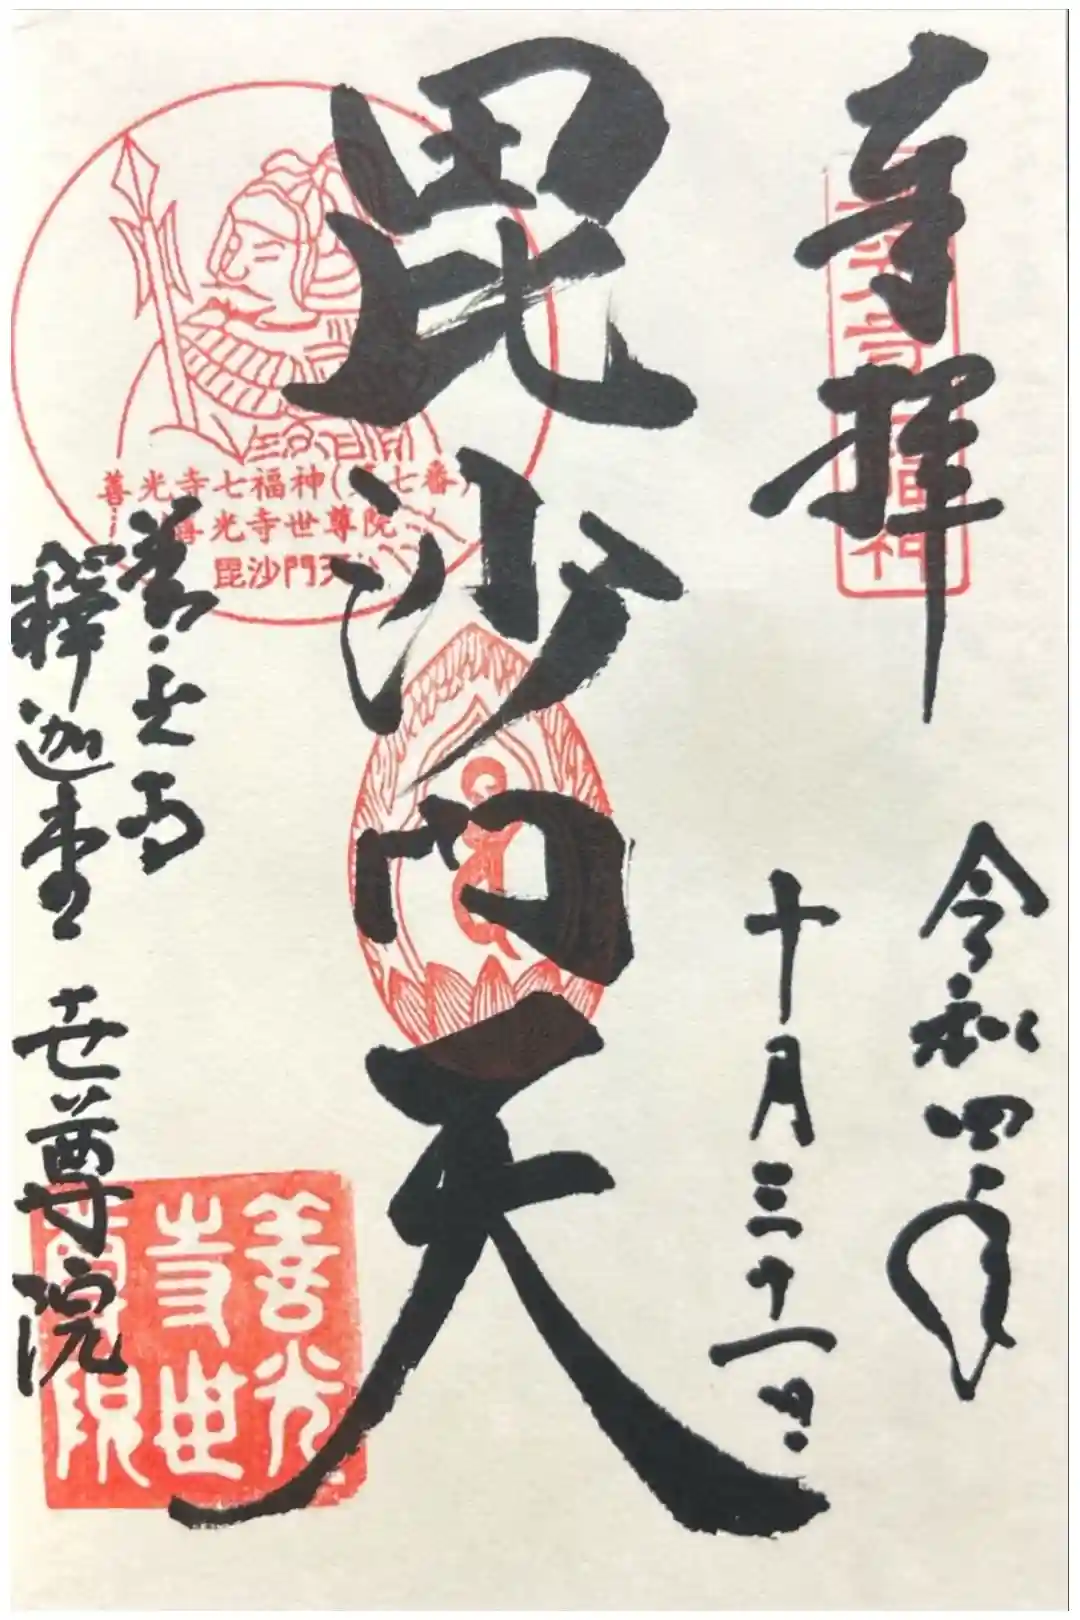 奉拝
令和四年
十月三十一日
毘沙門天
善光寺七福神(第七番)
善光寺世尊院
毘沙門天
善光寺
釋迦堂 世尊院
善光
寺世
尊院